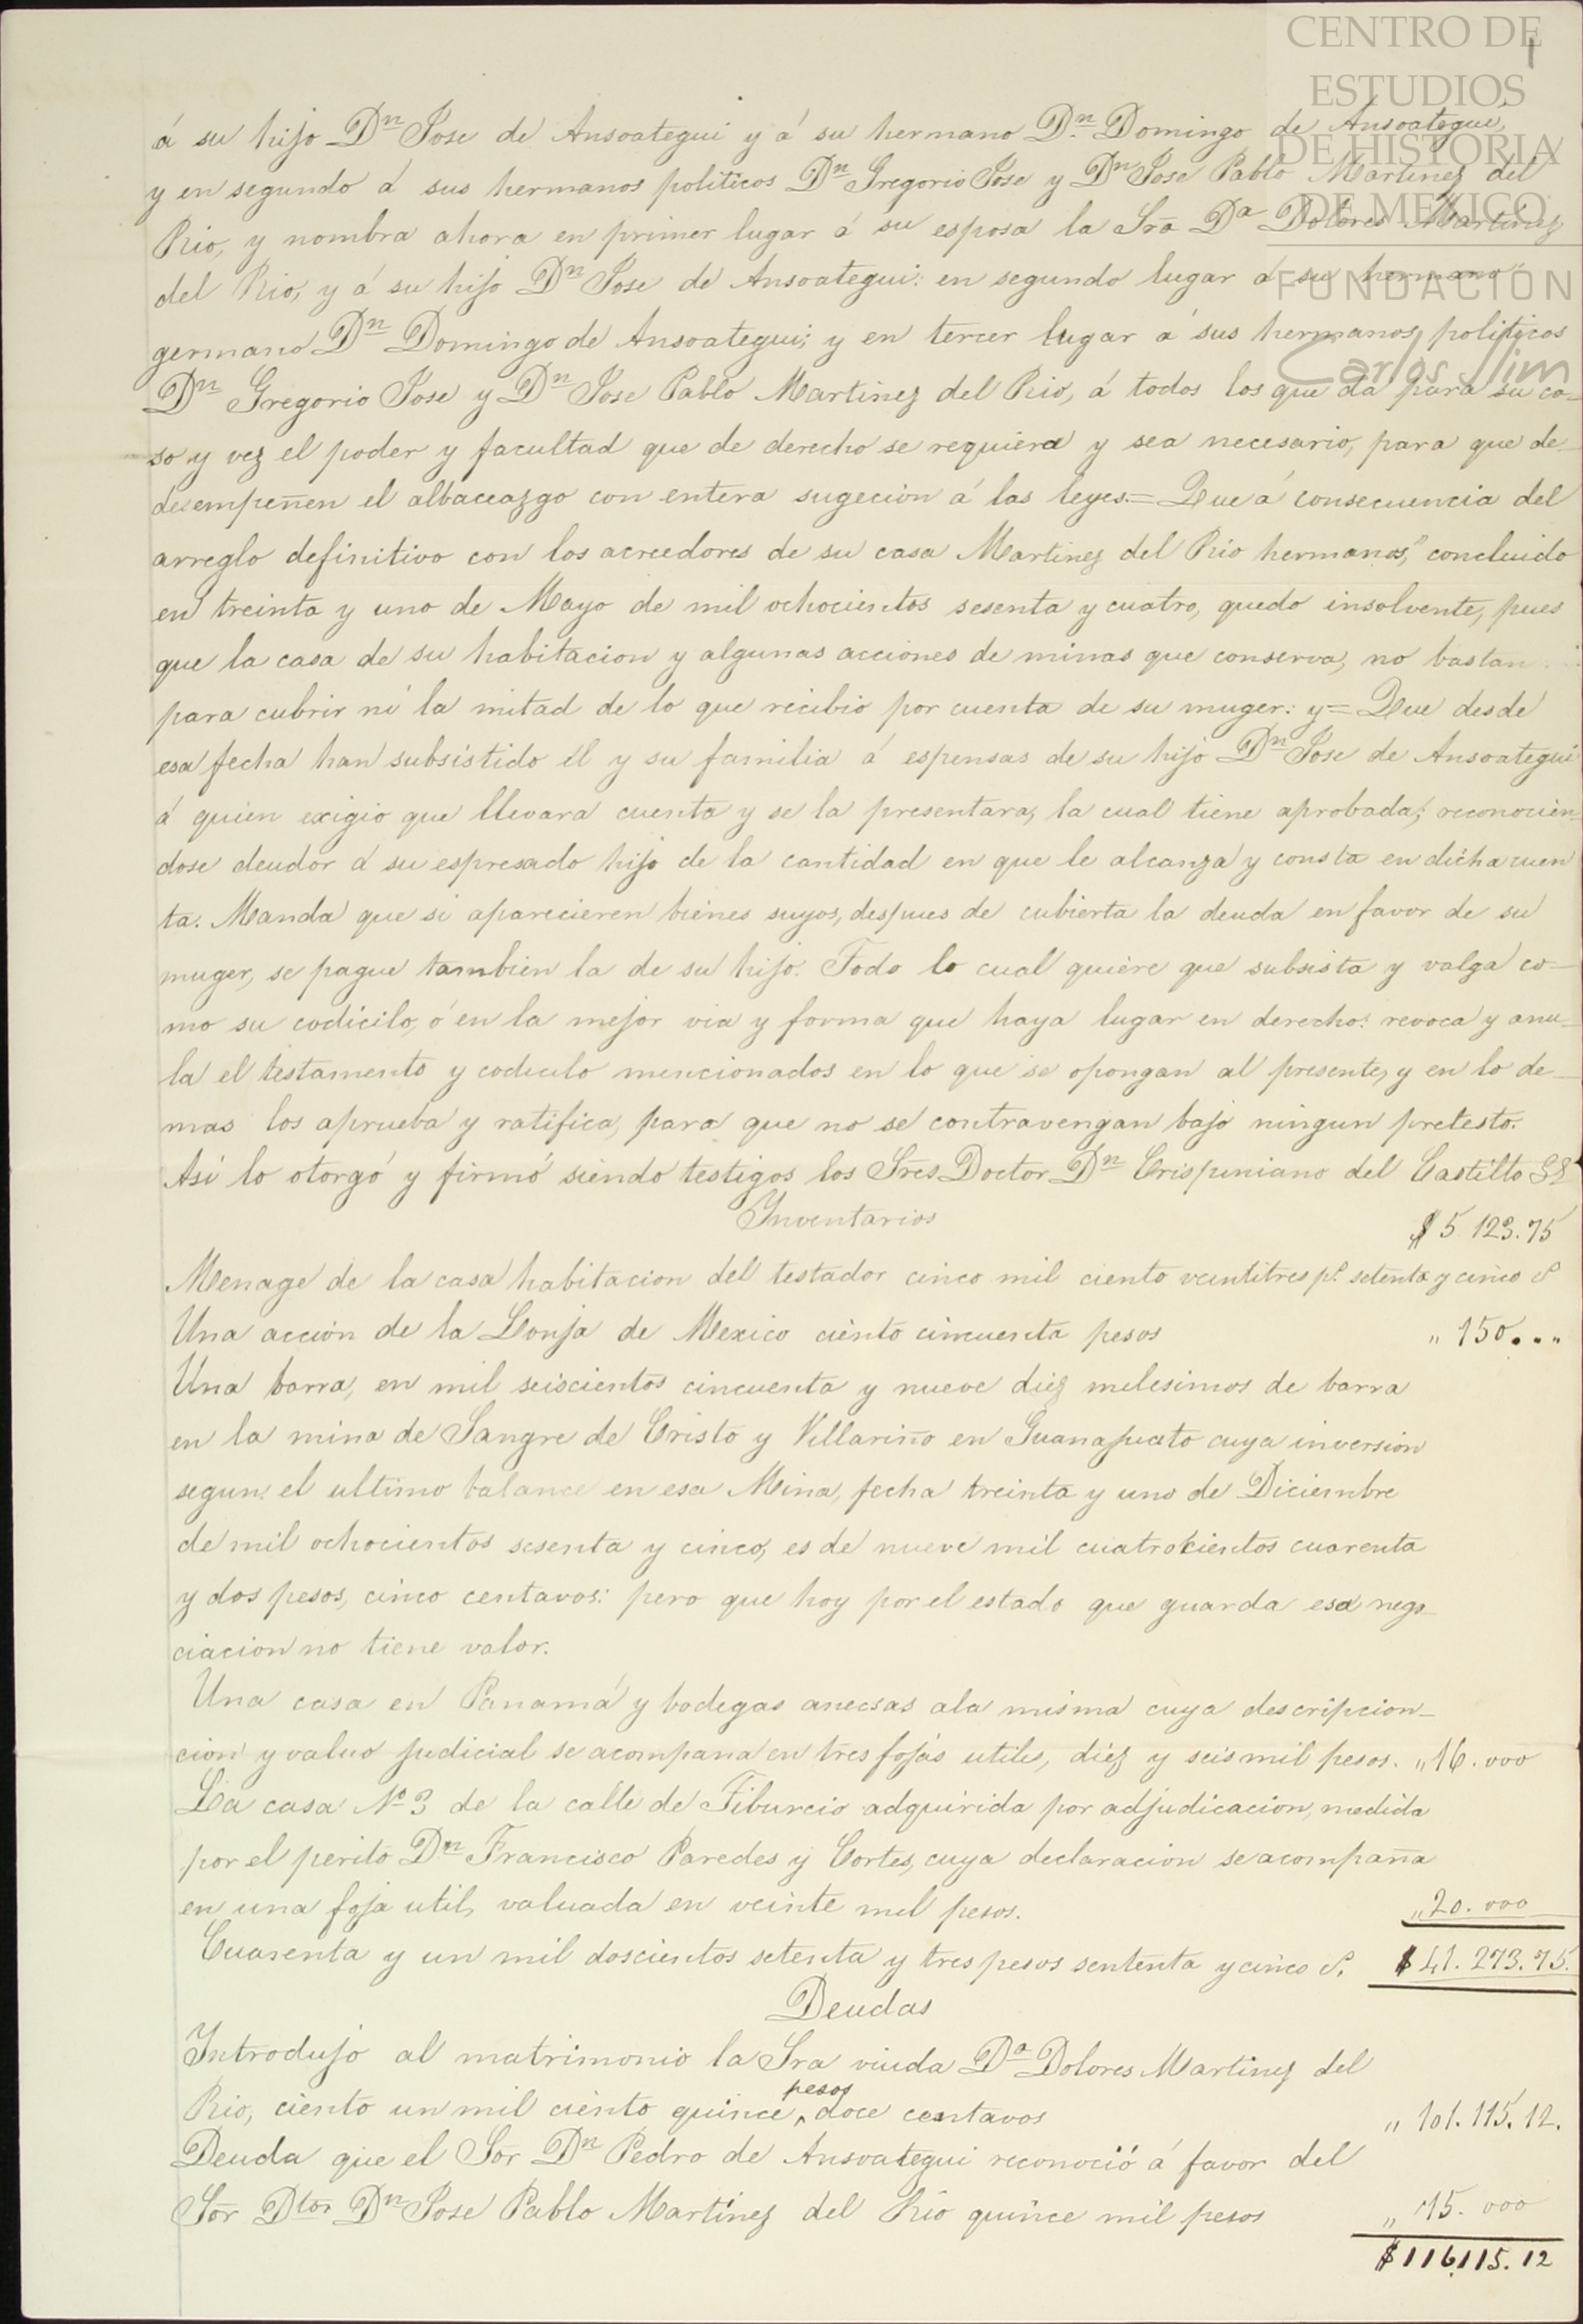 CENTRO DE
ESTUDIOS
DE HISTORIA
DE MEXICO
FUNDACIÓN
Carlos Slim
1
á su hijo Dn Jose de Ansoategui y á su hermano Dn Domingo de Ansoategui,
y en segundo á sus hermanos politicos Dn Gregorio Jose y Dn Jose Pablo Martinez del
Rio, y nombra ahora en primer lugar á su esposa la Sra Da Dolores Martinez
del Rio, y á su hijo Dn Jose de Ansoategui: en segundo lugar á su hermano
germano Dn Domingo de Ansoategui; y en tercer lugar á sus hermanos politicos
Dn Gregorio Jose y Dn Jose Pablo Martinez del Rio, á todos los que da para su ca-
so y vez el poder y facultad que de derecho se requiera y sea necesario, para que de-
desempeñen el albaceazgo con entera sugecion á las leyes.= Que á consecuencia del
arreglo definitivo con los acreedores de su casa Martinez del Rio hermanos," concluido
en treinta y uno de Mayo de mil ochocientos sesenta y cuatro, quedo insolvente, pues
que la casa de su habitacion y algunas acciones de minas que conserva, no bastan
para cubrir ni la mitad de lo que recibio por cuenta de su muger: y= Que desde
esa fecha han subsistido él y su familia á espensas de su hijo Dn Jose de Ansoategui
á quien exigio que llevara cuenta y se la presentara, la cual tiene aprobada; reconocien-
dose deudor á su espresado hijo de la cantidad en que le alcanza y consta en dicha cuen
ta. Manda que si aparecieren bienes suyos, despues de cubierta la deuda en favor de su
muger, se pague tambien la de su hijo. Todo lo cual quiere que subsista y valga co-
mo su codicilo, ó en la mejor via y forma que haya lugar en derecho: revoca y anu-
la el testamento y codicilo mencionados en lo que se opongan al presente, y en lo de-
mas los aprueba y ratifica, para que no se contravengan bajo ningun pretesto.
Asi lo otorgó y firmó siendo testigos los Sres Doctor Dn Crispiniano del Castillo
Inventarios
$ 5 123.75
Menage de la casa habitacion del testador cinco mil ciento veintitres ps. setenta y cinco cs
Una acción de la Lonja de Mexico ciento cincuenta pesos " 150...
Una barra, en mil seiscientos cincuenta y nueve diez milesimos de barra
en la mina de Sangre de Cristo y Villariño en Guanajuato cuya inversion
segun el ultimo balance en esa Mina, fecha treinta y uno de Diciembre
de mil ochocientos sesenta y cinco, es de nueve mil cuatrocientos cuarenta
y dos pesos, cinco centavos: pero que hoy por el estado que guarda esa nego-
ciacion no tiene valor.
Una casa en Panamá y bodegas anecsas ala misma cuya descripcion-
cion y valuo judicial se acompaña en tres fojas utiles, diez y seis mil pesos. " 16.000
La casa No 3 de la calle de Tiburcio adquirida por adjudicacion, medida
por el perito Dn Francisco Paredes y Cortes, cuya declaracion se acompaña
en una foja util, valuada en veinte mil pesos. " 20.000
Cuarenta y un mil doscientos setenta y tres pesos sententa y cinco cs. $ 41.273.75.
Deudas
Introdujo al matrimonio la Sra viuda Da Dolores Martinez del
Rio, ciento un mil ciento quince ^pesos doce centavos " 101.115.12.
Deuda que el Sor Dn Pedro de Ansoategui reconoció á favor del
Sor Dtor Dn Jose Pablo Martinez del Rio quince mil pesos " 15.000
$ 116,115.12